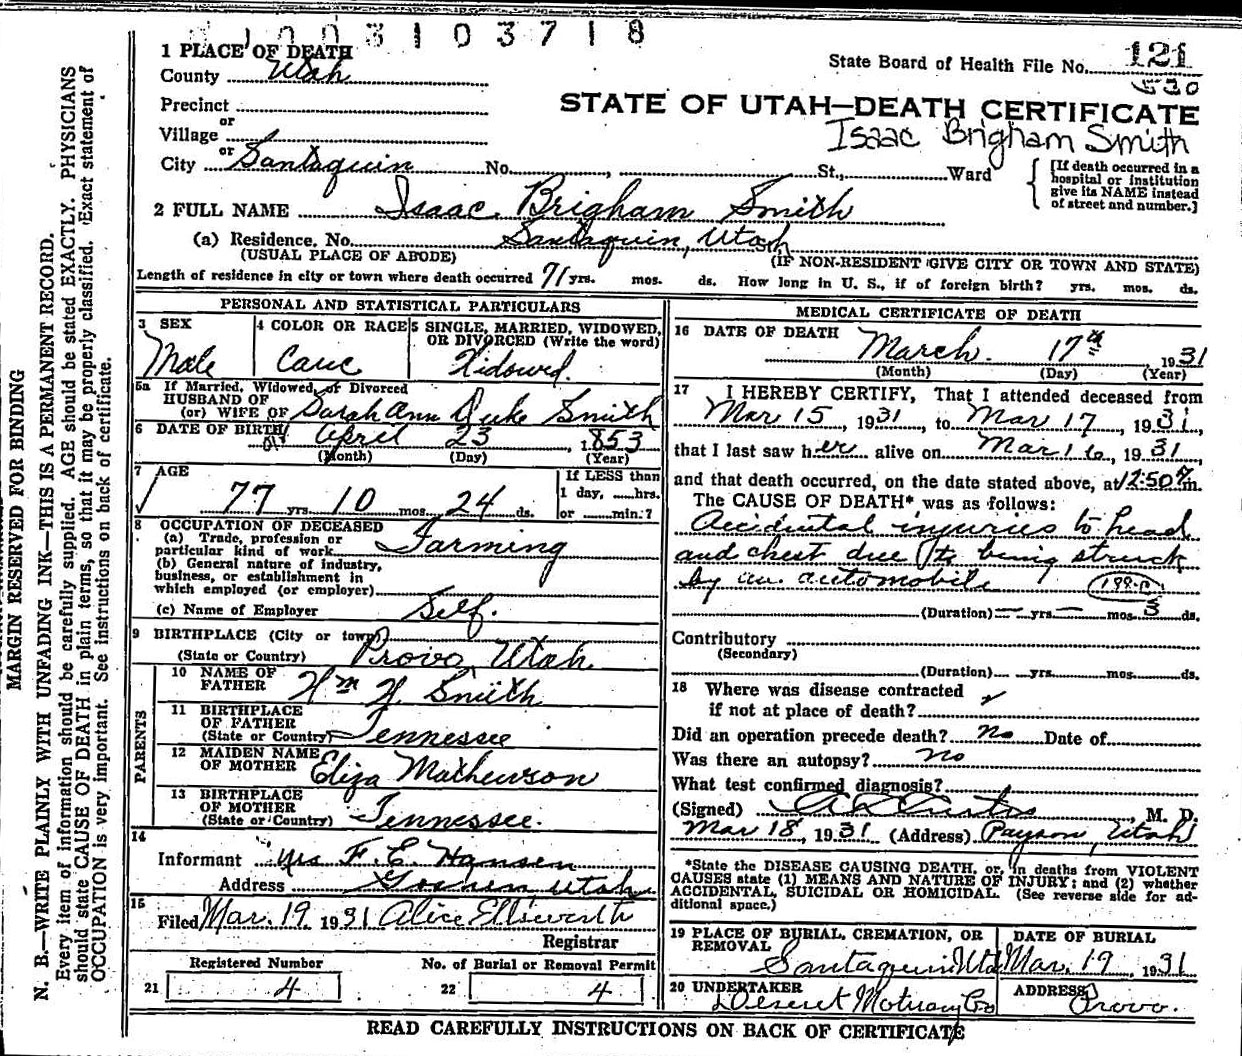 1003103718
1 PLACE OF DEATH
County Utah
State Board of Health File No. 121
530
Precinct
or
Village
or
City Santaquin No. , St., Ward
STATE OF UTAH—DEATH CERTIFICATE
Isaac Brigham Smith
[If death occurred in a
hospital or institution
give its NAME instead
of street and number.]
2 FULL NAME Isaac Brigham Smith
(a) Residence, No. Santaquin, Utah
(USUAL PLACE OF ABODE) (IF NON-RESIDENT GIVE CITY OR TOWN AND STATE)
Length of residence in city or town where death occurred 71 yrs. mos. ds. How long in U. S., if of foreign birth? yrs. mos. ds.
PERSONAL AND STATISTICAL PARTICULARS
3 SEX
Male
4 COLOR OR RACE
Cauc
5 SINGLE, MARRIED, WIDOWED,
OR DIVORCED (Write the word)
Widowd.
5a If Married, Widowed, or Divorced
HUSBAND OF
(or) WIFE OF Sarah Ann Duke Smith
6 DATE OF BIRTH April 23, 1853
(Month) (Day) (Year)
7 AGE
77 yrs. 10 mos. 24 ds.
If LESS than
1 day, hrs.
or min.?
8 OCCUPATION OF DECEASED
(a) Trade, profession or
particular kind of work Farming
(b) General nature of industry,
business, or establishment in
which employed (or employer)
(c) Name of Employer Self.
9 BIRTHPLACE (City or town)
(State or Country) Provo, Utah.
PARENTS
10 NAME OF
FATHER Wm W. Smith
11 BIRTHPLACE
OF FATHER
(State or Country) Tennessee
12 MAIDEN NAME
OF MOTHER Eliza Mathewson
13 BIRTHPLACE
OF MOTHER
(State or Country) Tennessee.
14
Informant Mrs F. E. Hansen
Address Goshen Utah
15
Filed Mar. 19, 1931 Alice Ellsworth
Registrar
Registered Number
21 4
No. of Burial or Removal Permit
22 4
MEDICAL CERTIFICATE OF DEATH
16 DATE OF DEATH
March 17th 1931
(Month) (Day) (Year)
17 I HEREBY CERTIFY, That I attended deceased from
Mar 15, 1931, to Mar 17, 1931,
that I last saw her alive on Mar 16, 1931,
and that death occurred, on the date stated above, at 12:50 m.
The CAUSE OF DEATH* was as follows:
Accidental injuries to head
and chest due to being struck
by an automobile
(Duration) yrs. mos. 3 ds.
Contributory
(Secondary)
(Duration) yrs. mos. ds.
18 Where was disease contracted
if not at place of death?
Did an operation precede death? no Date of
Was there an autopsy? no
What test confirmed diagnosis?
(Signed) , M. D.
Mar 18, 1931 (Address) Payson, Utah
*State the DISEASE CAUSING DEATH, or, in deaths from VIOLENT
CAUSES state (1) MEANS AND NATURE OF INJURY; and (2) whether
ACCIDENTAL, SUICIDAL OR HOMICIDAL. (See reverse side for ad-
ditional space.)
19 PLACE OF BURIAL, CREMATION, OR
REMOVAL
Santaquin Utah
DATE OF BURIAL
Mar. 19, 1931
20 UNDERTAKER
Deseret Motuary Co
ADDRESS
Provo.
READ CAREFULLY INSTRUCTIONS ON BACK OF CERTIFICATE
MARGIN RESERVED FOR BINDING
N. B.—WRITE PLAINLY WITH UNFADING INK—THIS IS A PERMANENT RECORD.
Every item of information should be carefully supplied. AGE should be stated EXACTLY. PHYSICIANS
should state CAUSE OF DEATH in plain terms, so that it may be properly classified. Exact statement of
OCCUPATION is very important. See instructions on back of certificate.